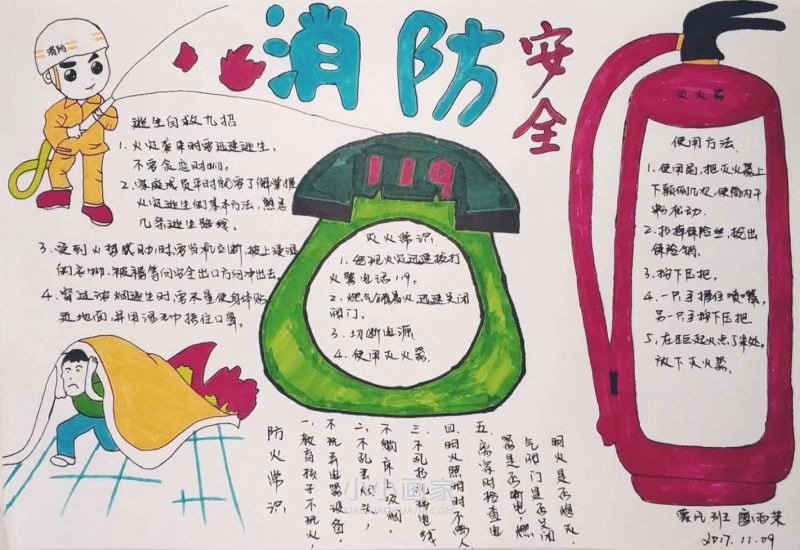 消防安全
消防
逃生自救九招
1. 火灾袭来时要迅速逃生,
不要贪恋财物。
2. 家庭成员平时就要了解掌握
火灾逃生的基本方法,熟悉
几条逃生路线。
3. 受到火势威胁时,要当机立断,披上浸湿
的衣物、被褥等向安全出口方向冲出去。
4. 穿过浓烟逃生时,要尽量使身体贴
近地面,并用湿毛巾捂住口鼻。
119
灭火常识
1. 发现火灾迅速拨打
火警电话119。
2. 燃气罐着火迅速关闭
阀门。
3. 切断电源
4. 使用灭火器。
灭火器
使用方法
1. 使用前,把灭火器上
下颠倒几次,使筒内干
粉松动.
2. 拉掉保险丝,拔出
保险销。
3. 按下压把。
4. 一只手握住喷嘴,
另一只手按下压把
5. 在距起火点5米处,
放下灭火器.
防火常识
一、教育孩子不玩火,
不玩弄电器设备.
二、不乱丢烟头,
不躺床吸烟.
三、不乱接电线
四、明火照明时不离人
五、离家时检查电
器是否断电,燃
气阀门是否关闭
明火是否熄灭.
小小画家
XIAOXIAOHUAJIA.COM
2017.11.09